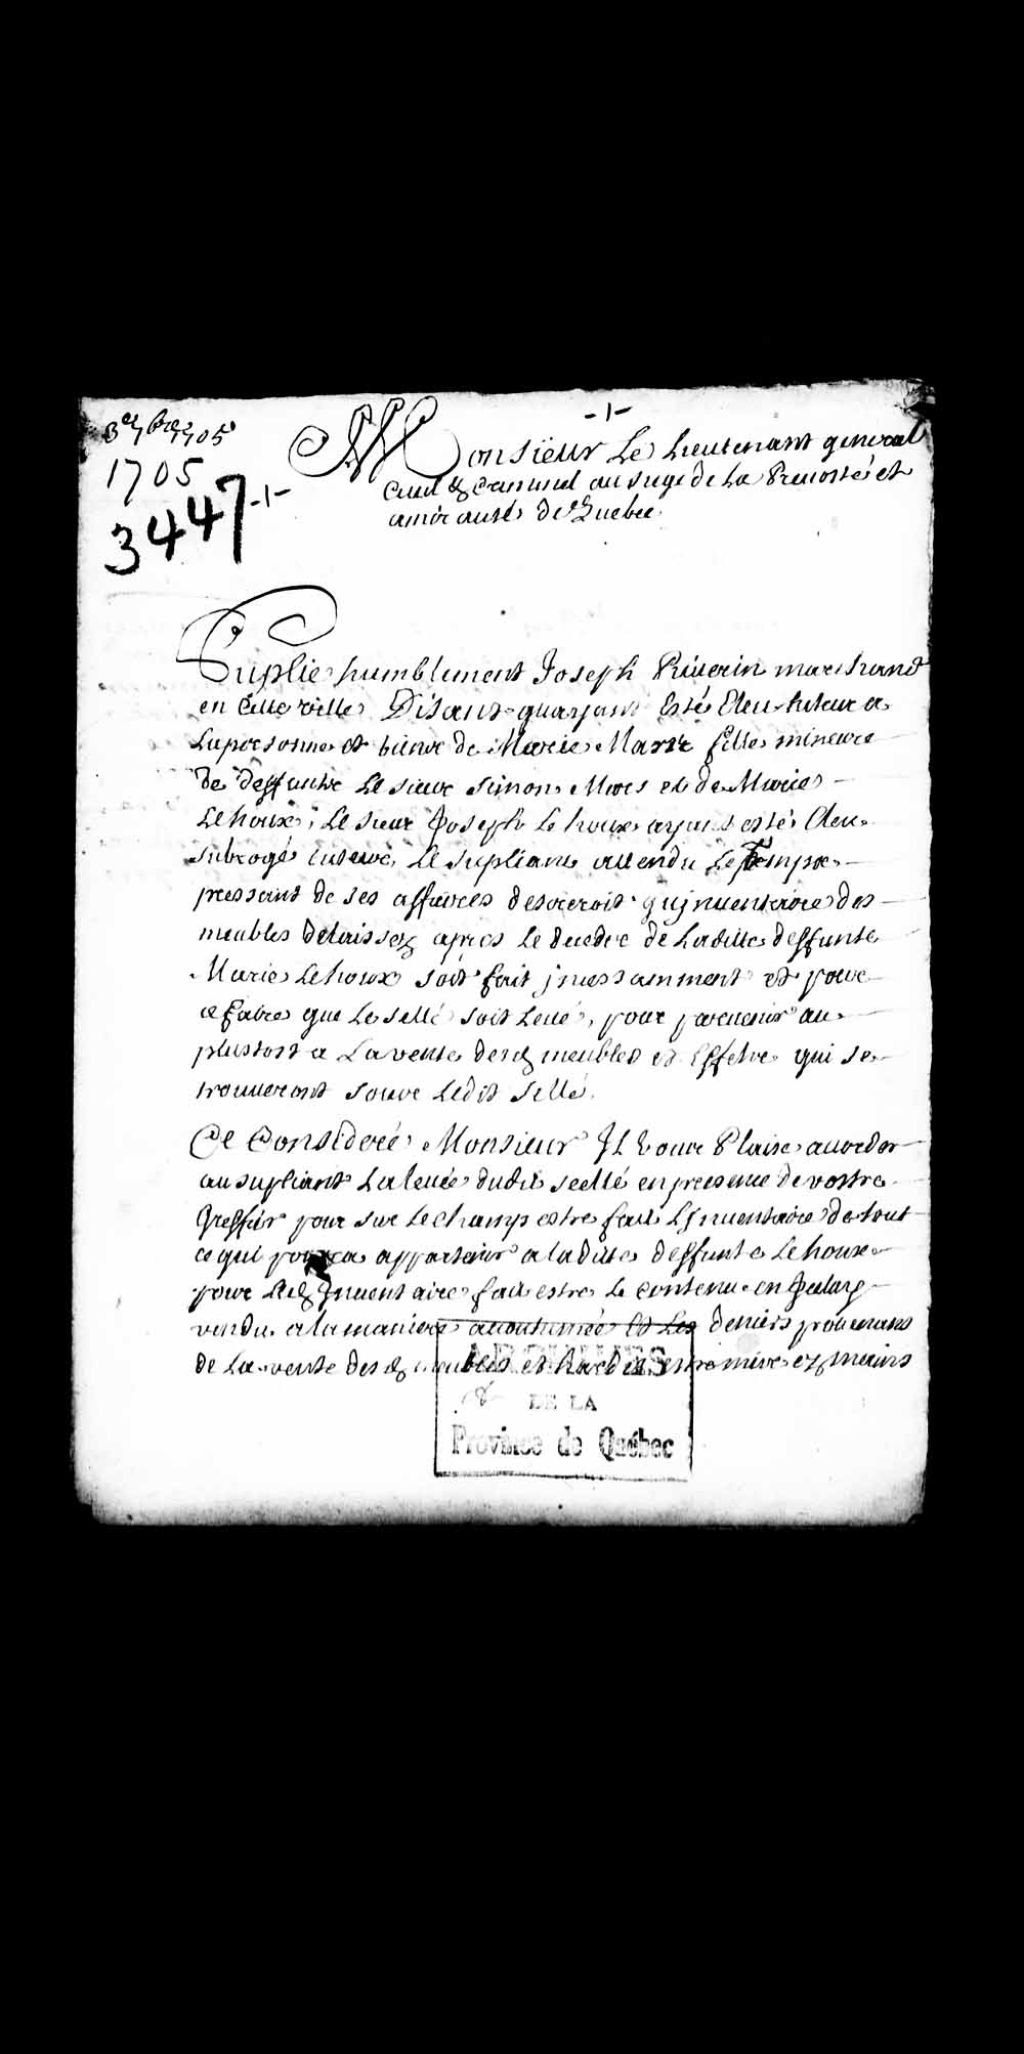 3e 7bre 1705
1705
3447 -1-
-1-
Monsieur Le Lieutenant general
Ciuil & Criminel au siege de La Preuosté et
amirauté de Quebec
Suplie humblement Joseph Riuerin marchand
en Cette ville Disant quayant Esté Eleu tuteur a
La personne et biens de Marie Mars fille mineure
de deffunts Le sieur Simon Mars et de Marie
Lehoux, Le sieur Joseph Lehoux ayant esté Eleu
subrogé tuteur, Le supliant attendu Le Temps
pressant de ses affaires desireroit qujnuentaire des
meubles delaissez apres Le decedz de Laditte deffunte
Marie Lehoux soit fait jncessamment et pour
ce faire que Le sellé soit Leué, pour paruenir au
plustost a La vente desd meubles et Effets qui se
trouueront souz Ledit sellé.
Ce Consideré Monsieur Il Vous Plaise accorder
au supliant La leuée dudit scellé en presence de vostre
Greffier pour sur Le champ estre fait Ljnuentaire de tout
ce qui poura appartenir a laditte deffunte Lehoux
pour Led jnuentaire fait estre Le contenu en jcelluy
vendu a la maniere accoutumée Et Les deniers prouenans
de La vente desd meubles et hardes estre mis ez mains
ARCHIVES
DE LA
Province de Québec